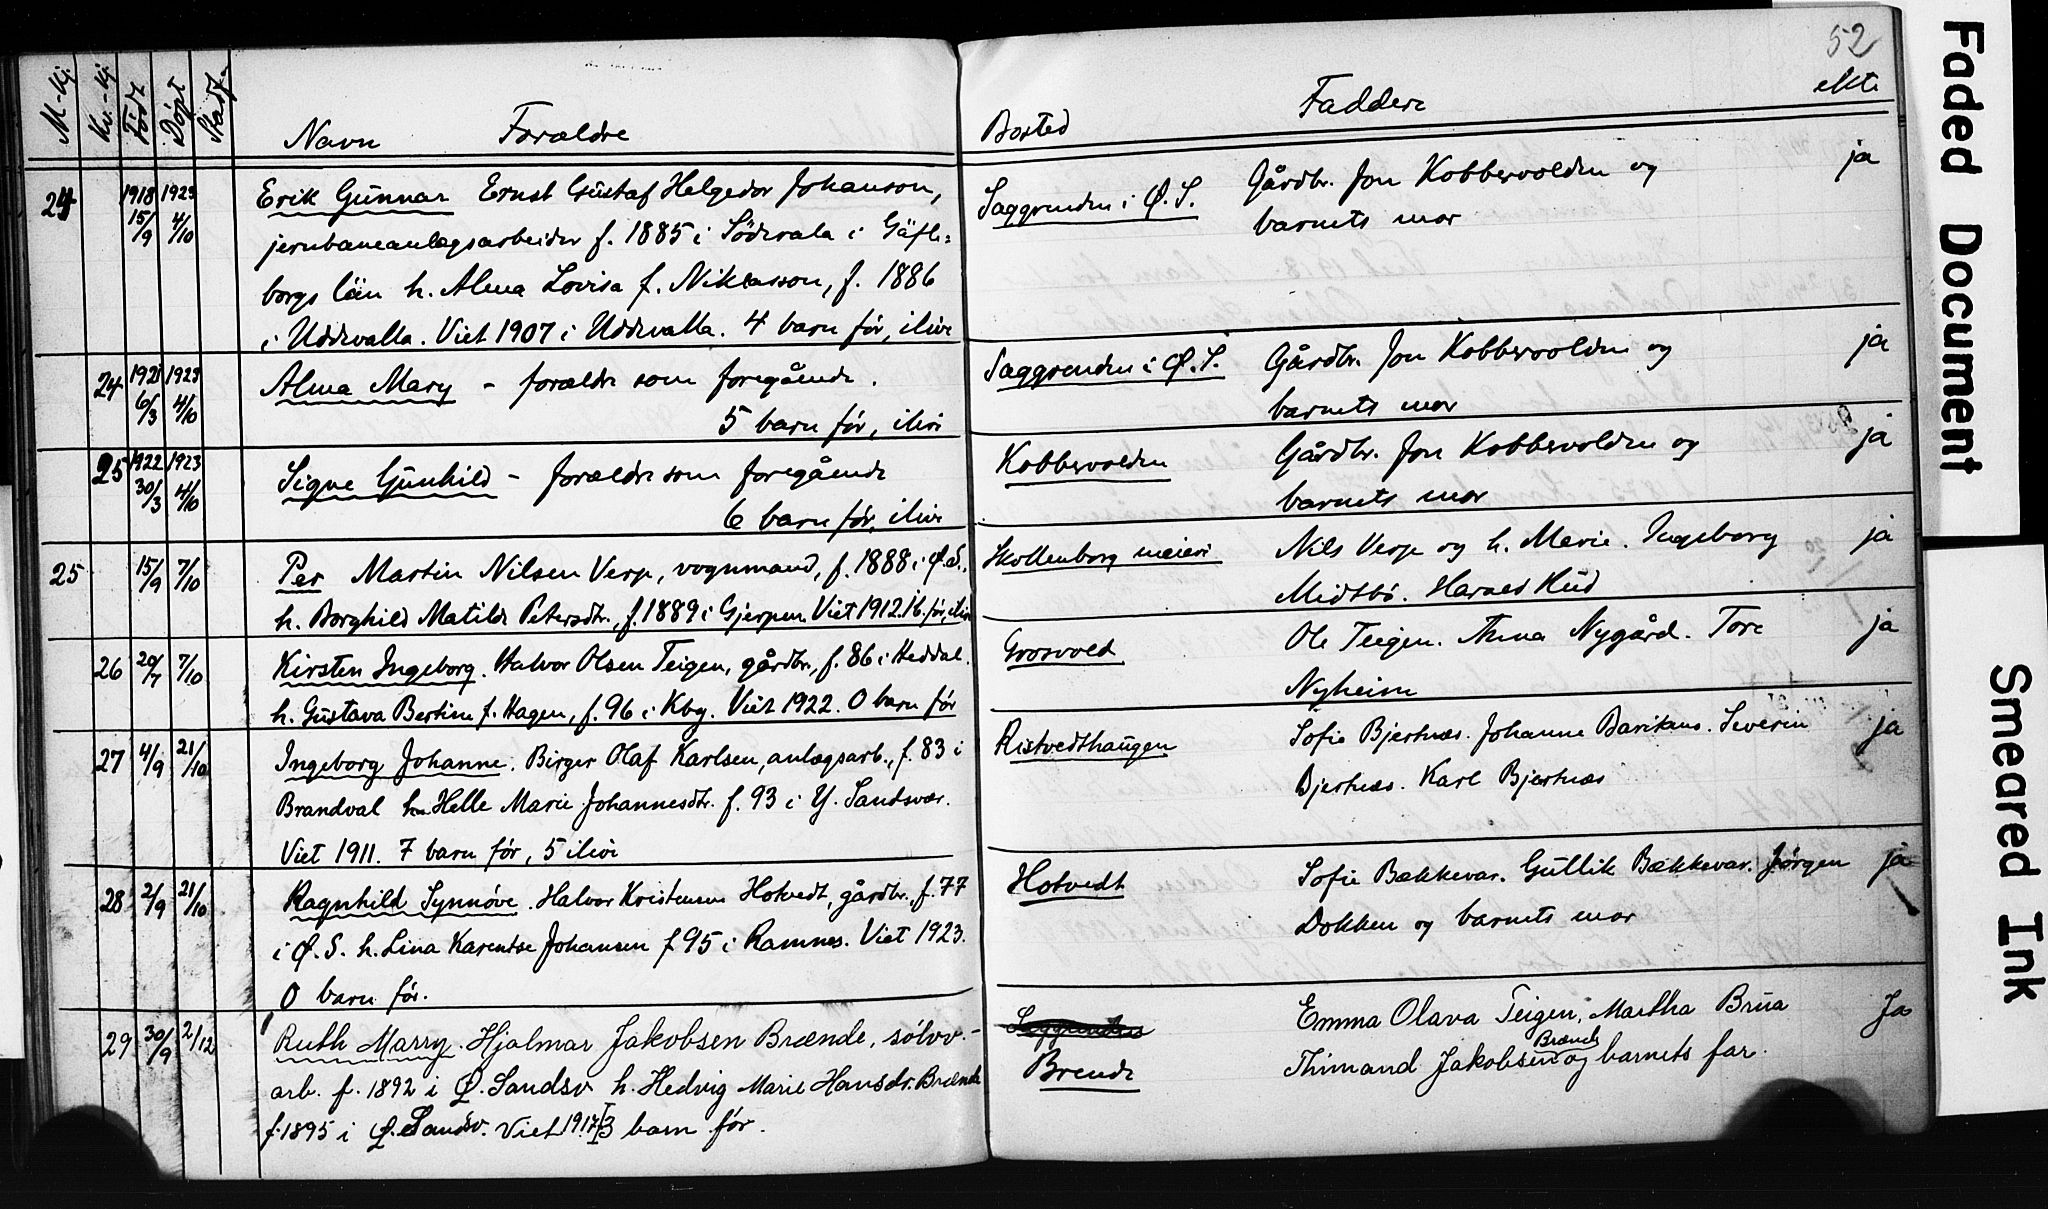 52
M-Kj. Kv.-Kj. Født Döpt Stadf.
Navn Forældre Bosted Faddere ekte
24 1918 15/9 1923 4/10
Erik Gunnar Ernst Gustaf Helgedor Johanson,
jernbaneanlægsarbeider f. 1885 i Söderala i Gäfle=
borgs län h. Alma Lovisa f. Niklasson, f. 1886
i Uddevalla. Viet 1907 i Uddevalla. 4 barn før, ilive
Saggrenden i Ø. S. Gårdbr. Jon Kobbervolden og ja
barnets mor
24 1921 6/3 1923 4/10
Alma Mary – forældre som foregående.
5 barn før, ilive
Saggrenden i Ø. S. Gårdbr. Jon Kobbervolden og ja
barnets mor
25 1922 30/3 1923 4/10
Signe Gunhild – forældre som foregående
6 barn før, ilive
Kobbervolden Gårdbr. Jon Kobbervolden og ja
barnets mor
25 15/9 7/10
Per Martin Nilsen Verp, vognmand, f. 1888 i Ø. S.,
h. Borghild Matilde Petersdtr., f. 1889 i Gjerpen. Viet 1912. 1 b. før, ilive
Skollenborg meieri Nils Verp og h. Marie. Ingeborg ja
Midtbø. Harald Hud
26 20/7 7/10
Kirsten Ingeborg. Halvor Olsen Teigen, gårdbr., f. 86 i Heddal.
h. Gustava Bertine f. Hagen, f. 96 i Kbg. Viet 1922. 0 barn før
Grosvold Ole Teigen. Anna Nygård. Tore ja
Nyheim
27 4/9 21/10
Ingeborg Johanne. Birger Olaf Karlsen, anlægsarb., f. 83 i
Brandval h. Helle Marie Johannesdtr. f. 93 i Y. Sandsvær.
Viet 1911. 7 barn før, 5 ilive
Ristvedthaugen Sofie Bjertnæs. Johanne Barikaas. Severin ja
Bjertnæs. Karl Bjertnæs
28 2/9 21/10
Ragnhild Synnöve. Halvor Kristensen Hotvedt, gårdbr., f. 77
i Ø. S. h. Lina Karentse Johansen f 95 i Ramnes. Viet 1923.
0 barn før.
Hotvedt Sofie Bækkevar. Gullik Bækkevar. Jørgen ja
Dokken og barnets mor
29 30/9 2/12
Ruth Marry. Hjalmar Jakobsen Brænde, sölvv-
arb. f. 1892 i Ø. Sandsv h. Hedvig Marie Hansdr. Brænde
f. 1895 i Ø. Sandsv. Viet 1917 3 barn før.
Saggrenden
Brende
Emma Olava Teigen, Martha Brua Ja
Thimand Jakobsen Brænde og barnets far.
Faded Document
Smeared Ink